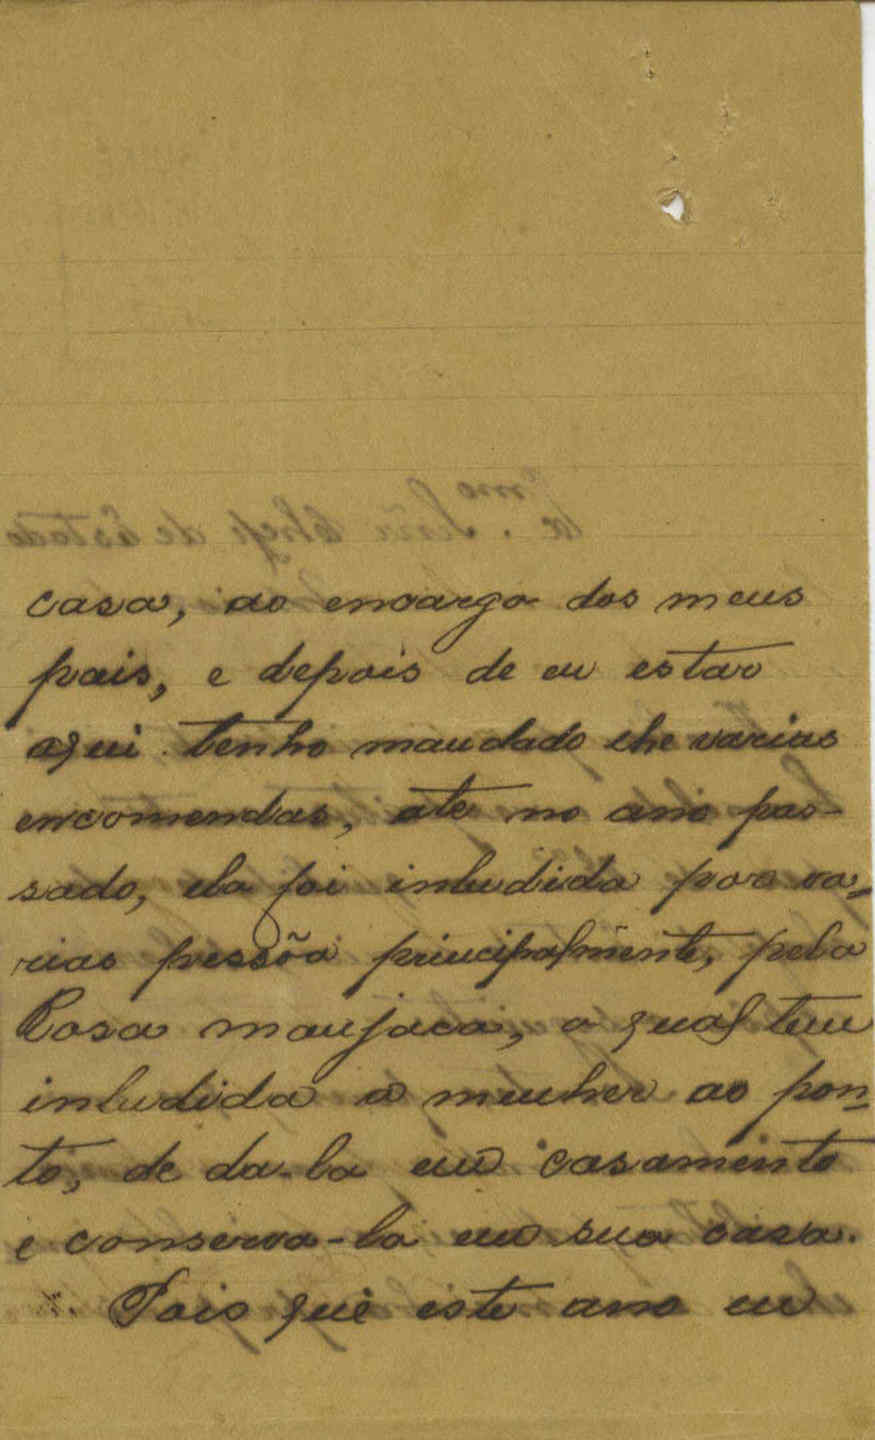 casa, ao encargo dos meus
pais, e depois de eu estar
aqui tenho mandado lhe varias
encomendas, ate no ano pas-
sado, ela foi inludida por va-
rias pressõa principalmente, pela
Rosa maujaca, a qual tem
inludida a mulher ao pon-
to, de da-la em casamento
e conserva-la em sua casa.
Pois que este ano eu